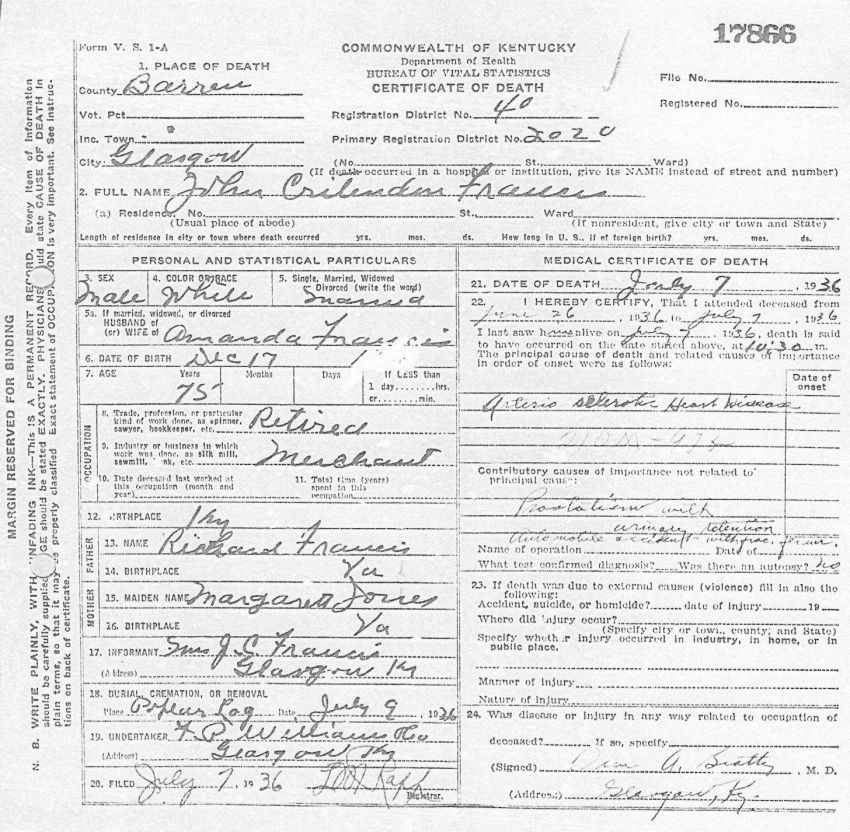 17866
Form V. S. 1-A
COMMONWEALTH OF KENTUCKY
Department of Health
BUREAU OF VITAL STATISTICS
CERTIFICATE OF DEATH
File No.
Registered No.
1. PLACE OF DEATH
County Barren
Vot. Pct.
Inc. Town
City Glasgow
Registration District No. 40
Primary Registration District No. 2020
(No. St., Ward)
(If death occurred in a hospital or institution, give its NAME instead of street and number)
2. FULL NAME John Critendon Francis
(a) Residence. No. St., Ward
(Usual place of abode) (If nonresident, give city or town and State)
Length of residence in city or town where death occurred yrs. mos. ds. How long in U. S., if of foreign birth? yrs. mos. ds.
PERSONAL AND STATISTICAL PARTICULARS
3. SEX Male
4. COLOR OR RACE White
5. Single, Married, Widowed
Divorced (write the word)
Married
5a. If married, widowed, or divorced
HUSBAND of
(or) WIFE of Amanda Francis
6. DATE OF BIRTH Dec 17
7. AGE Years Months Days If LESS than
75 1 day hrs.
or min.
OCCUPATION
8. Trade, profession, or particular
kind of work done, as spinner,
sawyer, bookkeeper, etc. Retired
9. Industry or business in which
work was done, as silk mill,
sawmill, etc. Merchant
10. Date deceased last worked at
this occupation (month and
year)
11. Total time (years)
spent in this
occupation
12. BIRTHPLACE Ky
FATHER
13. NAME Richard Francis
14. BIRTHPLACE Va
MOTHER
15. MAIDEN NAME Margarett Jones
16. BIRTHPLACE Va
17. INFORMANT J. C. Francis
(Address) Glasgow Ky
18. BURIAL, CREMATION, OR REMOVAL
Place Poplar Log Date July 9, 1936
19. UNDERTAKER F. P. Williams
(Address) Glasgow Ky
20. FILED July 7, 1936
Registrar.
MEDICAL CERTIFICATE OF DEATH
21. DATE OF DEATH July 7, 1936
22. I HEREBY CERTIFY, That I attended deceased from
June 26, 1936 to July 7, 1936
I last saw alive on July 7, 1936, death is said
to have occurred on the date stated above, at 10:30 m.
The principal cause of death and related causes of importance
in order of onset were as follows:
Date of
onset
Arterio sclerotic Heart Disease
Contributory causes of importance not related to
principal cause:
Prostatism with
urinary retention
Automobile accident with frac. femur
Name of operation Date of
What test confirmed diagnosis? Was there an autopsy? no
23. If death was due to external causes (violence) fill in also the
following:
Accident, suicide, or homicide? date of injury 19
Where did injury occur?
(Specify city or town, county, and State)
Specify whether injury occurred in industry, in home, or in
public place.
Manner of injury
Nature of injury
24. Was disease or injury in any way related to occupation of
deceased? If so, specify
(Signed) A. Beatty, M. D.
(Address) Glasgow, Ky.
MARGIN RESERVED FOR BINDING
N. B. WRITE PLAINLY, WITH UNFADING INK—THIS IS A PERMANENT RECORD. Every item of information
should be carefully supplied. AGE should be stated EXACTLY. PHYSICIANS should state CAUSE OF DEATH in
plain terms, so that it may be properly classified. Exact statement of OCCUPATION is very important. See instruc-
tions on back of certificate.